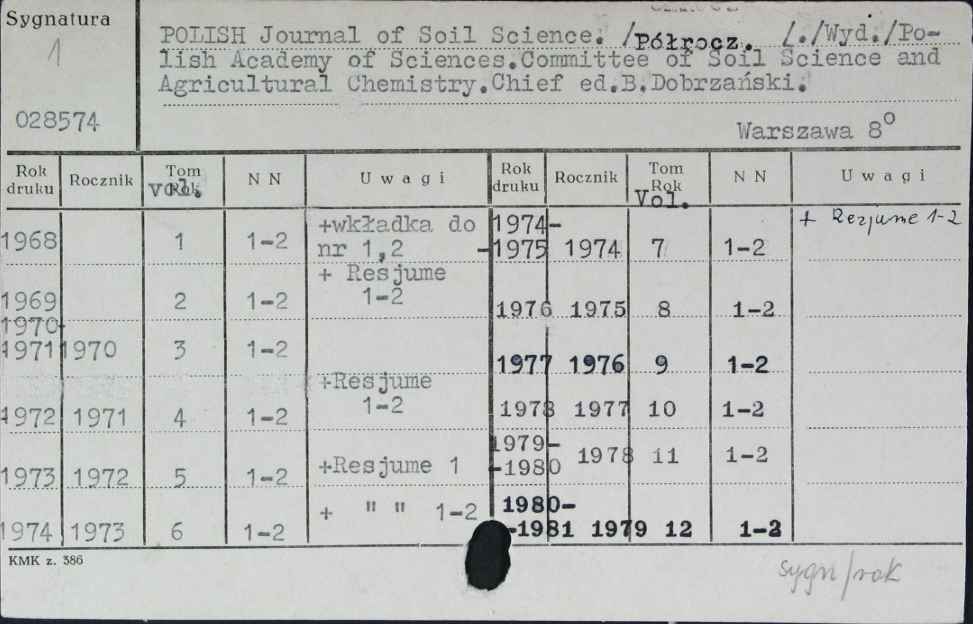 Sygnatura
1
028574
POLISH Journal of Soil Science. /Półrocz. /./Wyd./Po-
lish Academy of Sciences.Committee of Soil Science and
Agricultural Chemistry.Chief ed.B.Dobrzański.
Warszawa 8º
Rok druku Rocznik Tom Rok Vol. N N Uwagi Rok druku Rocznik Tom Rok Vol. N N Uwagi
1968 1 1-2 +wkładka do nr 1,2 1974- -1975 1974 7 1-2 + Rezjume 1-2
1969 2 1-2 + Resjume 1-2 1976 1975 8 1-2
1970- 1971 1970 3 1-2 1977 1976 9 1-2
1972 1971 4 1-2 +Resjume 1-2 1978 1977 10 1-2
1973 1972 5 1-2 +Resjume 1 1979- -1980 1978 11 1-2
1974 1973 6 1-2 + " " 1-2 1980- -1981 1979 12 1-2
KMK z. 386
sygn/rok